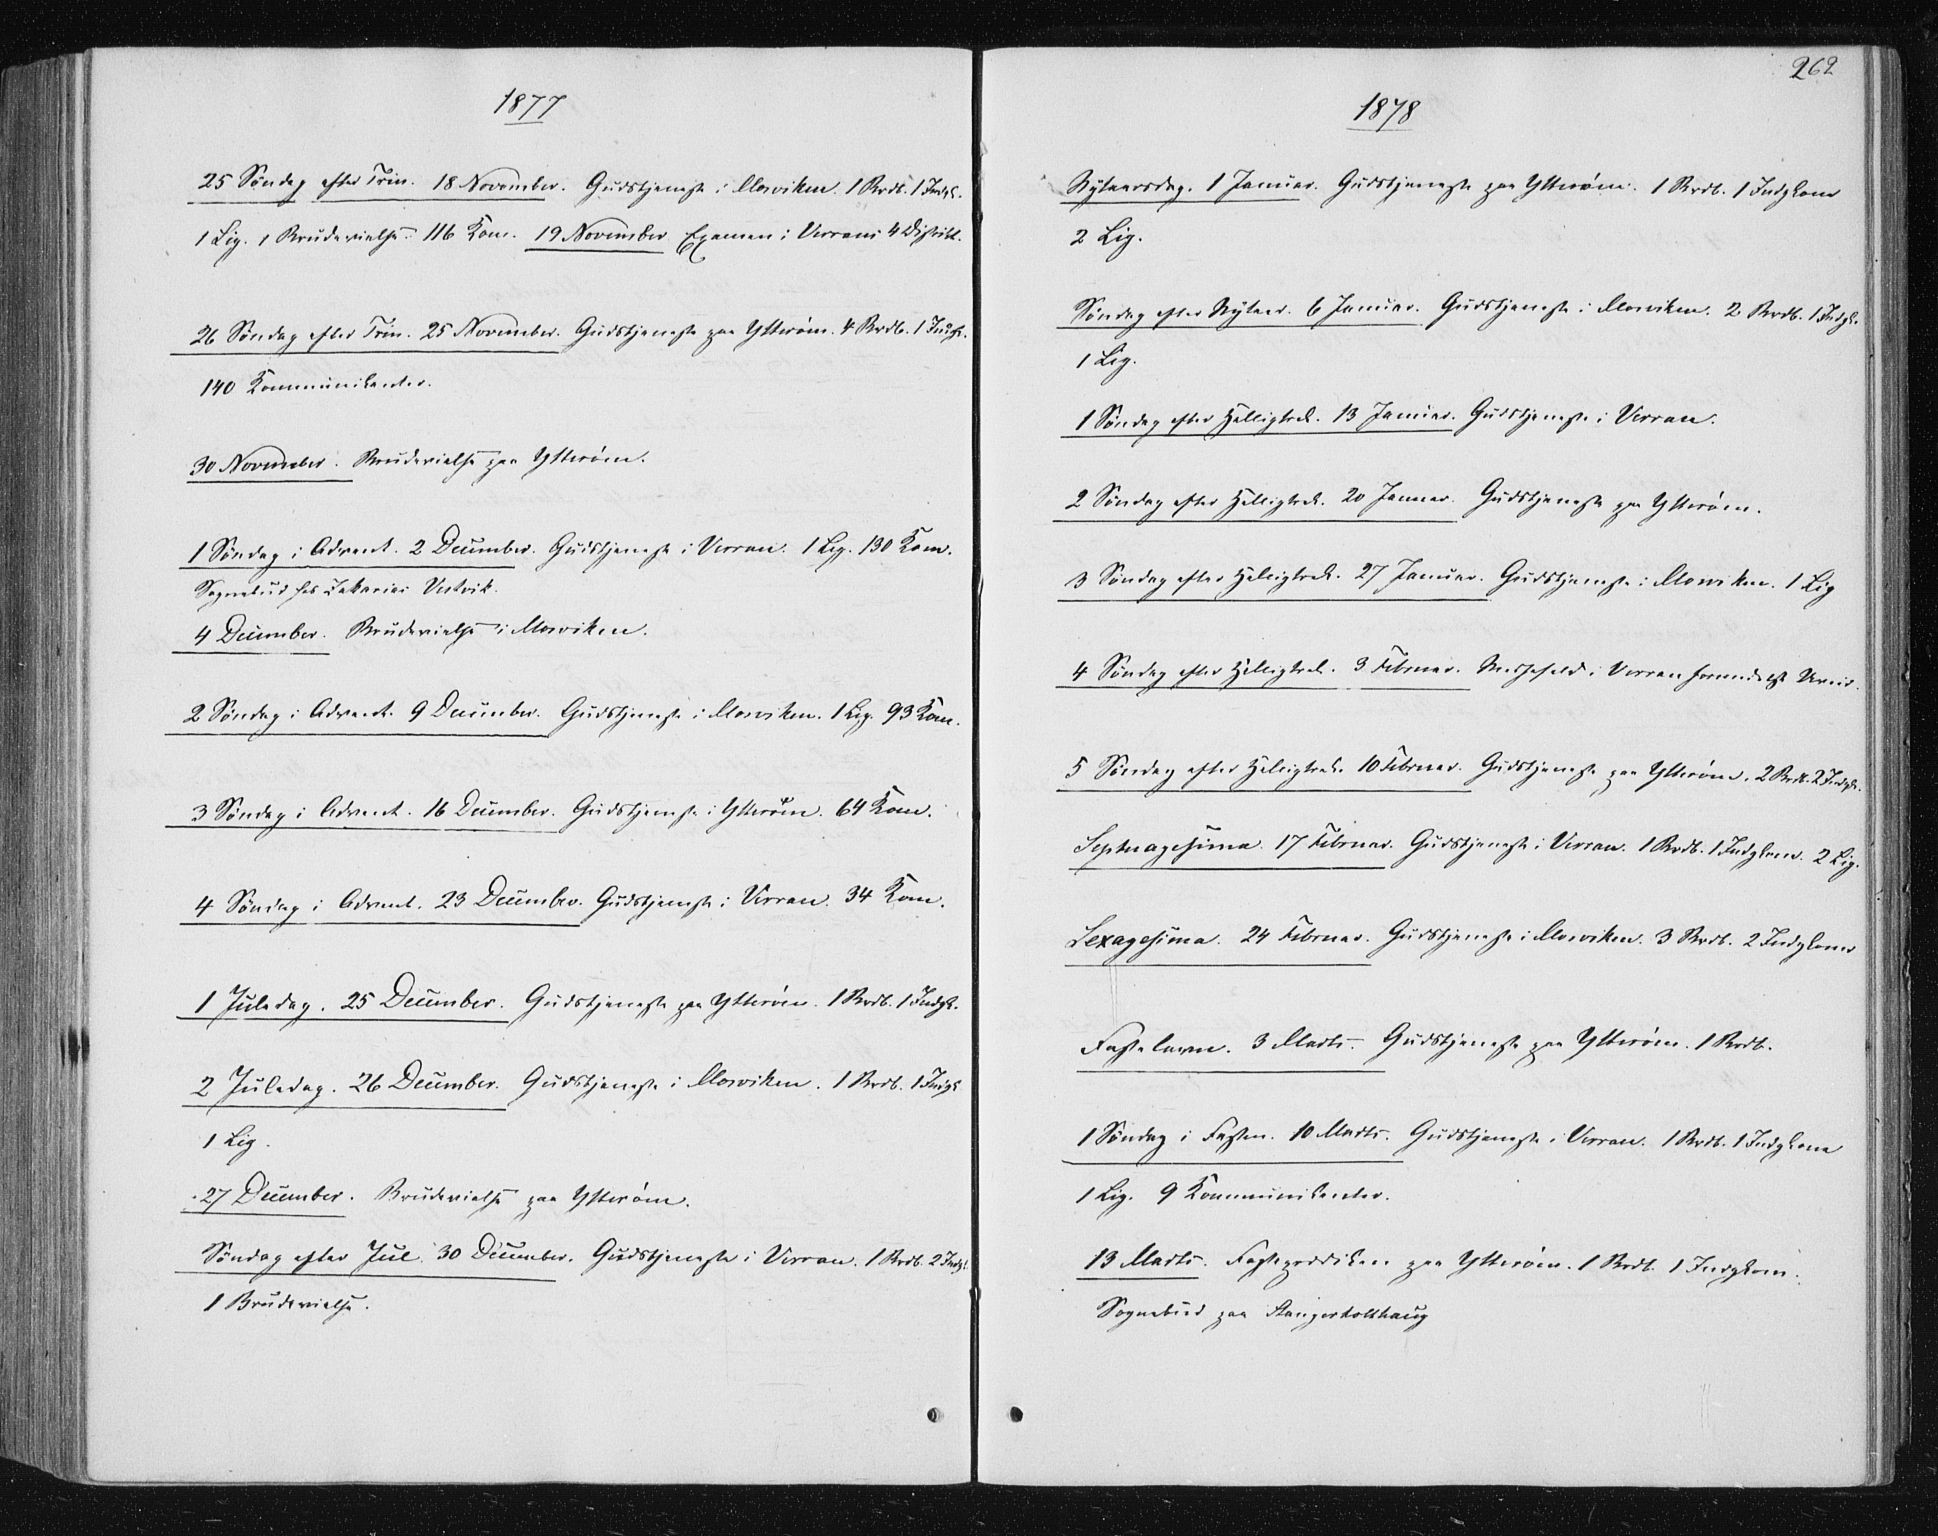 1877
25 Søndag efter Trin. 18 November. Gudstjeneste i Mosviken. 1 Brdb. 1 Indgk.
1 Lig. 1 Brudevielse. 116 Kom. 19 November Examen i Verrans 4 Distrikt.
26 Søndag efter Trin. 25 November. Gudstjeneste paa Ytterøen. 4 Brdb. 1 Indgk.
140 Kommunikanter.
30 November. Brudevielse paa Ytterøen.
1 Søndag i Advent. 2 December. Gudstjeneste i Verran. 1 Lig. 130 Kom.
Sognebud hos Zakarias Vestvik.
4 December. Brudevielse i Mosviken.
2 Søndag i Advent. 9 December. Gudstjeneste i Mosviken. 1 Lig. 93 Kom.
3 Søndag i Advent. 16 December. Gudstjeneste i Ytterøen. 64 Kom.
4 Søndag i Advent. 23 December. Gudstjeneste i Verran. 34 Kom.
1 Juledag. 25 December. Gudstjeneste paa Ytterøen. 1 Brdb. 1 Indgk.
2 Juledag. 26 December. Gudstjeneste i Mosviken. 1 Brdb. 1 Indgk
1 Lig.
27 December. Brudevielse paa Ytterøen.
Søndag efter Jul 30 December. Gudstjeneste i Verran. 1 Brdb. 2 Indgk.
1 Brudevielse.
262
1878
Nytaarsdag. 1 Januar. Gudstjeneste paa Ytterøen. 1 Brdb. 1 Indgkone
2 Lig.
Søndag efter Nytaar. 6 Januar. Gudstjeneste i Mosviken. 2 Brdb. 1 Indgk.
1 Lig.
1 Søndag efter Helligtrek. 13 Januar. Gudstjeneste i Verran.
2 Søndag efter Helligtrek. 20 Januar. Gudstjeneste paa Ytterøen.
3 Søndag efter Helligtrek. 27 Januar. Gudstjeneste i Mosviken. 1 Lig
4 Søndag efter Helligtrek. 3 Februar. Messefald i Verran formedelst Uveir.
5 Søndag efter Helligtrek. 10 Februar. Gudstjeneste paa Ytterøen. 2 Brdb. 2 Indgk.
Septuagesima. 17 Februar. Gudstjeneste i Verran. 1 Brdb. 1 Indgkone. 2 Lig.
Sexagesima. 24 Februar. Gudstjeneste i Mosviken. 3 Brdb. 2 Indgkoner
Fastelavn. 3 Marts. Gudstjeneste paa Ytterøen. 1 Brdb.
1 Søndag i Fasten. 10 Marts. Gudstjeneste i Verran. 1 Brdb. 1 Indgkone
1 Lig. 9 Kommunikanter.
13 Marts. Fasteprædiken paa Ytterøen. 1 Brdb. 1 Indgkone.
Sognebud paa Stangerholthaug